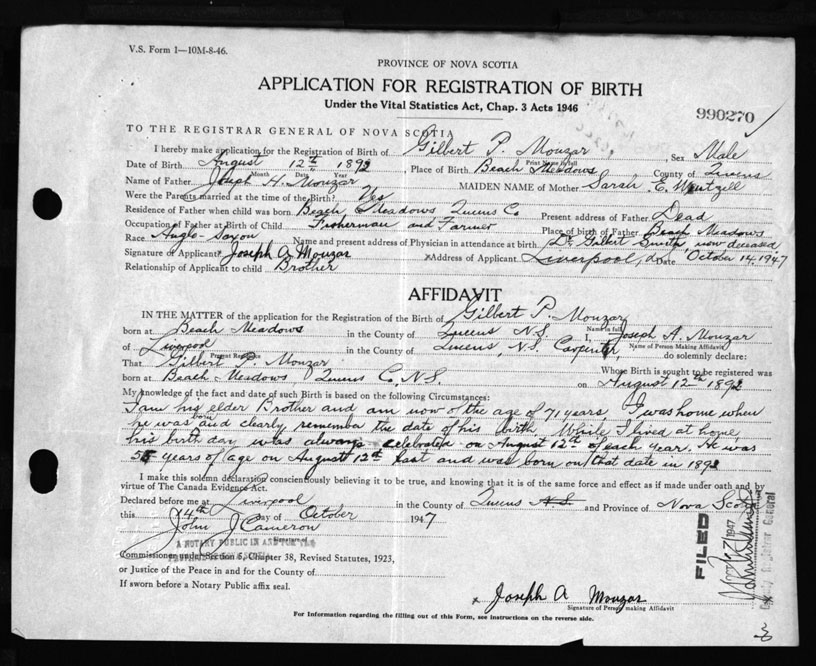 V.S. Form 1—10M-8-46.
PROVINCE OF NOVA SCOTIA
APPLICATION FOR REGISTRATION OF BIRTH
Under the Vital Statistics Act, Chap. 3 Acts 1946
990270
TO THE REGISTRAR GENERAL OF NOVA SCOTIA
I hereby make application for the Registration of Birth of Gilbert P. Mouzar, Sex Male
Print Name in full
Date of Birth August 12th 1892, Place of Birth Beach Meadows County of Queens
Month Date Year
Name of Father Joseph H. Mouzar MAIDEN NAME of Mother Sarah E.
Were the Parents married at the time of the Birth? Yes
Residence of Father when child was born Beach Meadows Queens Co Present address of Father Dead
Occupation of Father at Birth of Child Fisherman and Farmer Place of birth of Father Beach Meadows
Race Anglo-Saxon Name and present address of Physician in attendance at birth Dr. Gilbert Smith, now deceased
Signature of Applicant x Joseph A. Mouzar x Address of Applicant Liverpool, Date October 14, 1947
Relationship of Applicant to child Brother
AFFIDAVIT
IN THE MATTER of the application for the Registration of the Birth of Gilbert P. Mouzar
Name in full
born at Beach Meadows in the County of Queens N.S. I, Joseph A. Mouzar
Name of Person Making Affidavit
of Liverpool in the County of Queens, N.S. Carpenter, do solemnly declare:
Present Residence
That Gilbert P. Mouzar Whose Birth is sought to be registered was
born at Beach Meadows, Queens Co, N.S. on August 12th 1892
My knowledge of the fact and date of such Birth is based on the following Circumstances:
I am his elder Brother and am now of the age of 71 years. I was home when
he was born and clearly remember the date of his birth While I lived at home
his birth day was always celebrated on August 12th of each year. He was
55 years of age on August 12th last and was born on that date in 1892
I make this solemn declaration conscientiously believing it to be true, and knowing that it is of the same force and effect as if made under oath and by
virtue of The Canada Evidence Act.
Declared before me at Liverpool in the County of Queens N.S. and Province of Nova Scotia
this 14th day of October 1947
John J Cameron
Signature of
A NOTARY PUBLIC IN AND FOR THE
Commissioner under Section 6, Chapter 38, Revised Statutes, 1923,
or Justice of the Peace in and for the County of
If sworn before a Notary Public affix seal.
x Joseph A Mouzar
Signature of Person making Affidavit
For Information regarding the filling out of this Form, see instructions on the reverse side.
FILED
1947
Registrar General
3